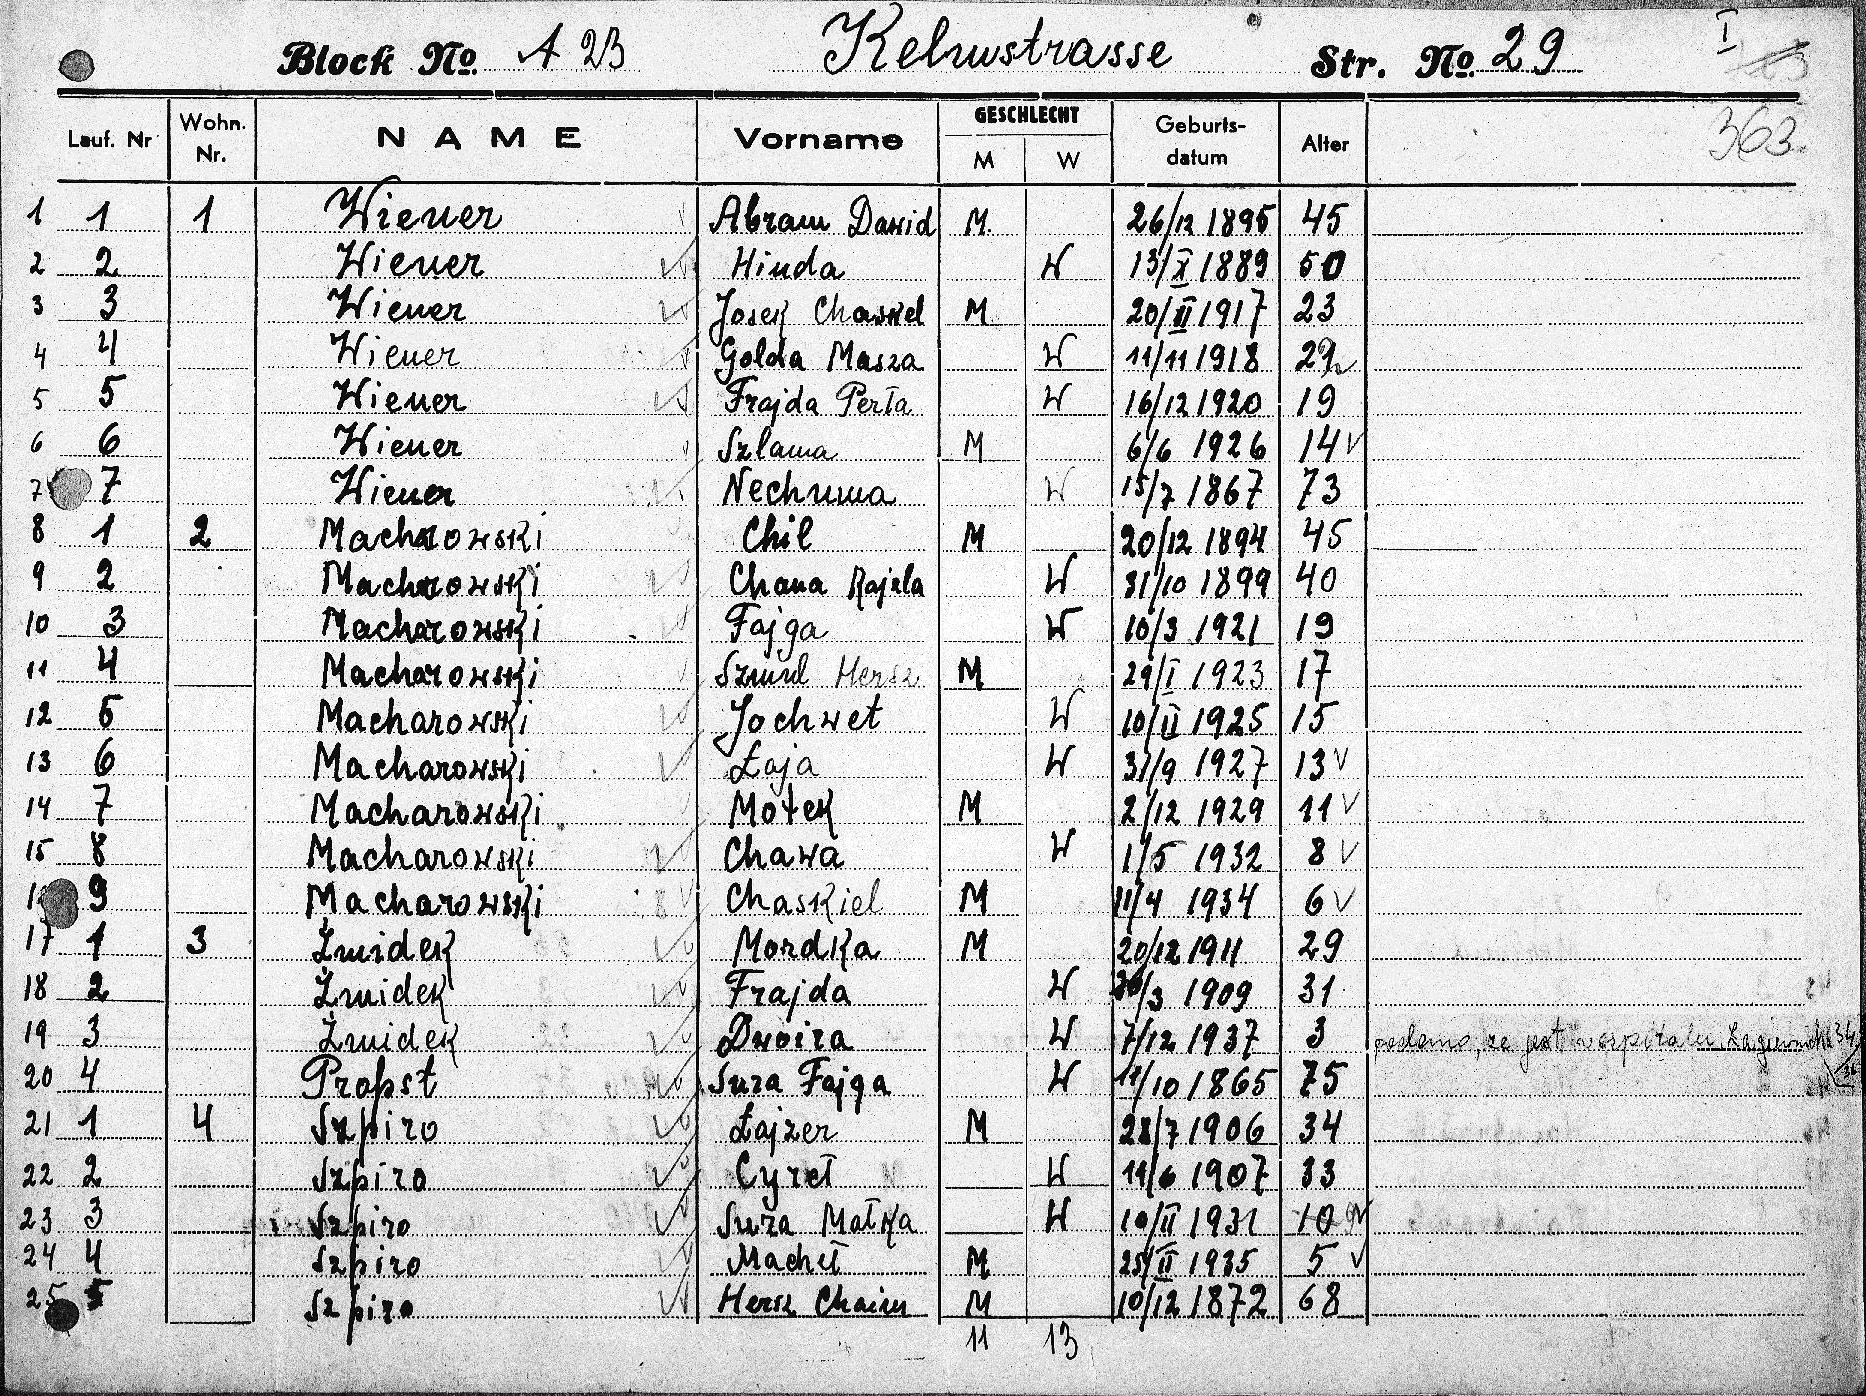 Block No. A 23 Kelmstrasse Str. No. 29 I
363.
Lauf. Nr Wohn. Nr. NAME Vorname GESCHLECHT M W Geburts-datum Alter
1 1 1 Wiener Abram Dawid M. 26/12 1895 45
2 2 Wiener Hinda W 13/X 1889 50
3 3 Wiener Josek Chaskel M 20/II 1917 23
4 4 Wiener Golda Masza W 11/11 1918
5 5 Wiener Frajda Perła W 16/12 1920 19
6 6 Wiener Szlama M 6/6 1926 14
7 7 Wiener Nechuma W 15/7 1867 73
8 1 2 Macharowski Chil M 20/12 1894 45
9 2 Macharowski Chana Rajzla W 31/10 1899 40
10 3 Macharowski Fajga W 10/3 1921 19
11 4 Macharowski Szmul Hersz M 29/I 1923 17
12 5 Macharowski Jochwet W 10/II 1925 15
13 6 Macharowski Łaja W 31/9 1927 13
14 7 Macharowski Motek M 2/12 1929 11
15 8 Macharowski Chawa W 1/5 1932 8
9 Macharowski Chaskiel M 11/4 1934 6
17 1 3 Żmidek Mordka M 20/12 1911 29
18 2 Żmidek Frajda W /3 1909 31
19 3 Żmidek Dwoira W 7/12 1937 3 podano, że jest w szpitalu Łagiewnicka 34/36
20 4 Probst Sura Fajga W 11/10 1865 75
21 1 4 Szpiro Łajzer M 28/7 1906 34
22 2 Szpiro Cyrel W 11/6 1907 33
23 3 Szpiro Sura Małka W 10/II 1931 10
24 4 Szpiro Machel M 25/II 1935 5
25 5 Szpiro Hersz Chaim M 10/12 1872 68
11 13